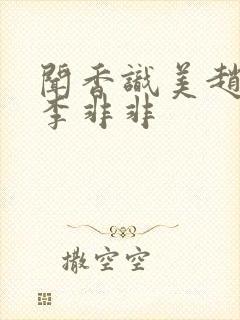 聞香識美趙
李非非
撒空空